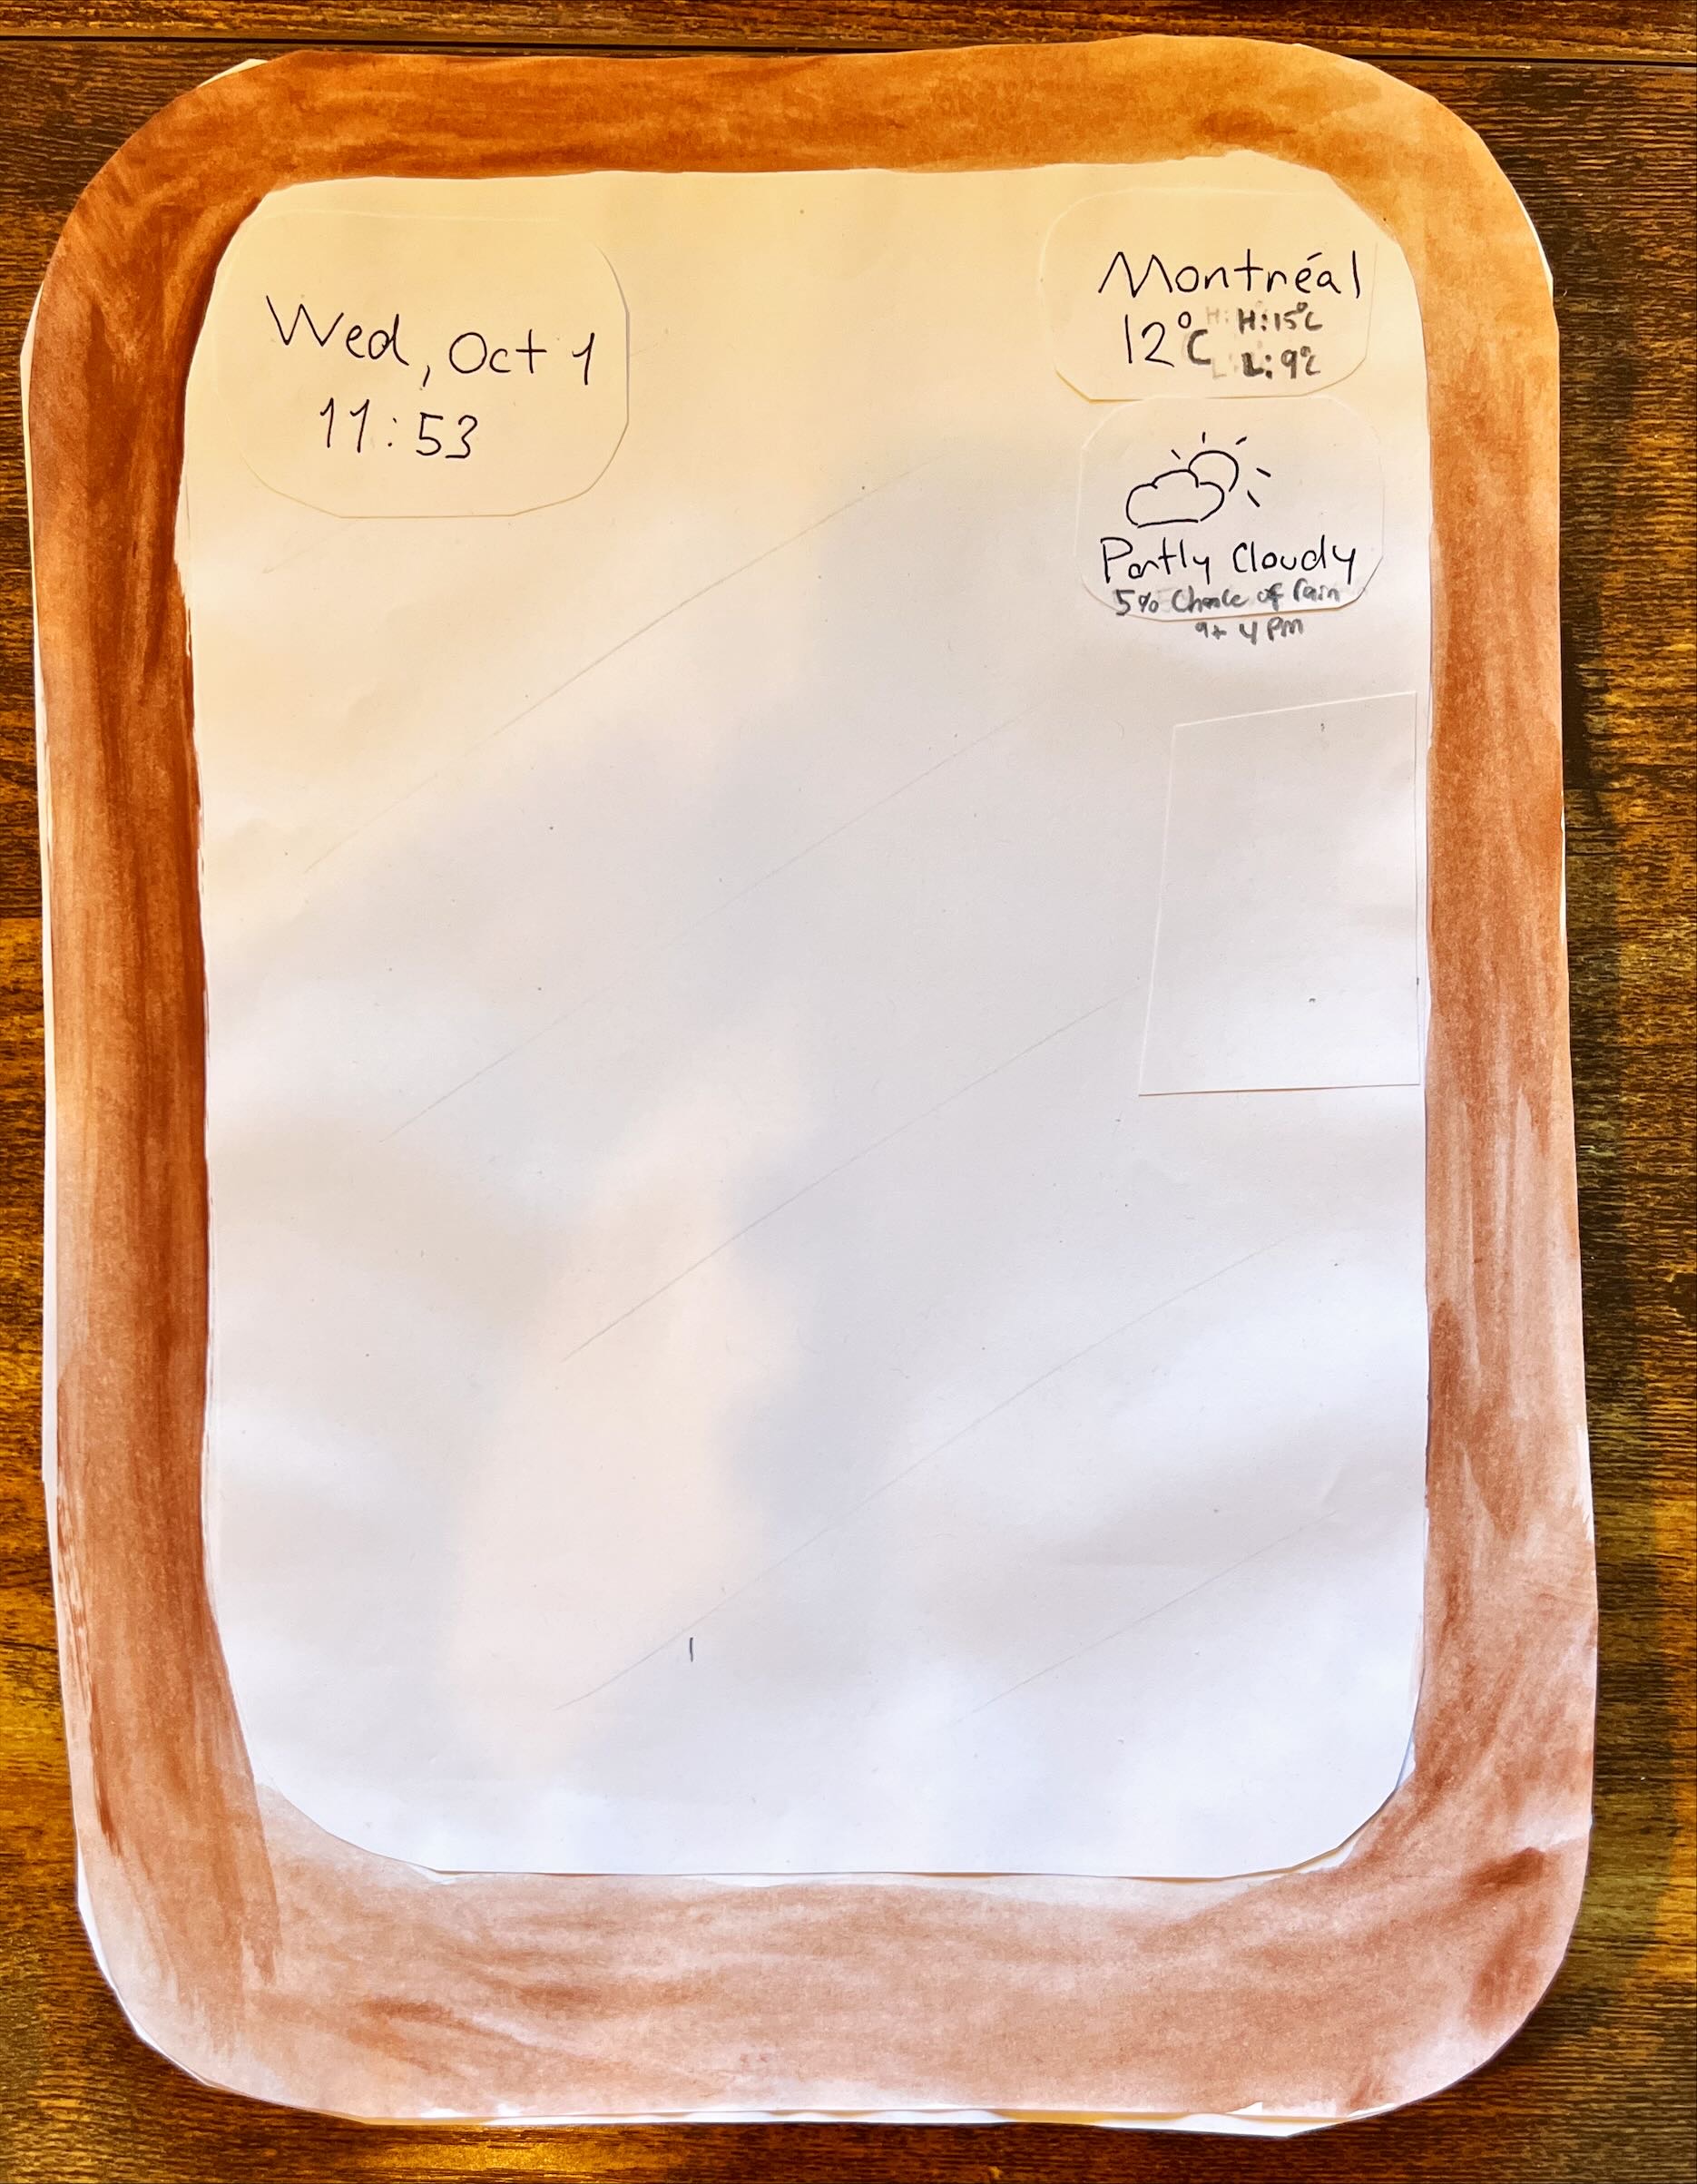 Wed, Oct 1
11:53
Montréal
12°C H:15°C
L:9°C
Partly Cloudy
5% Chance of rain
at 4 PM